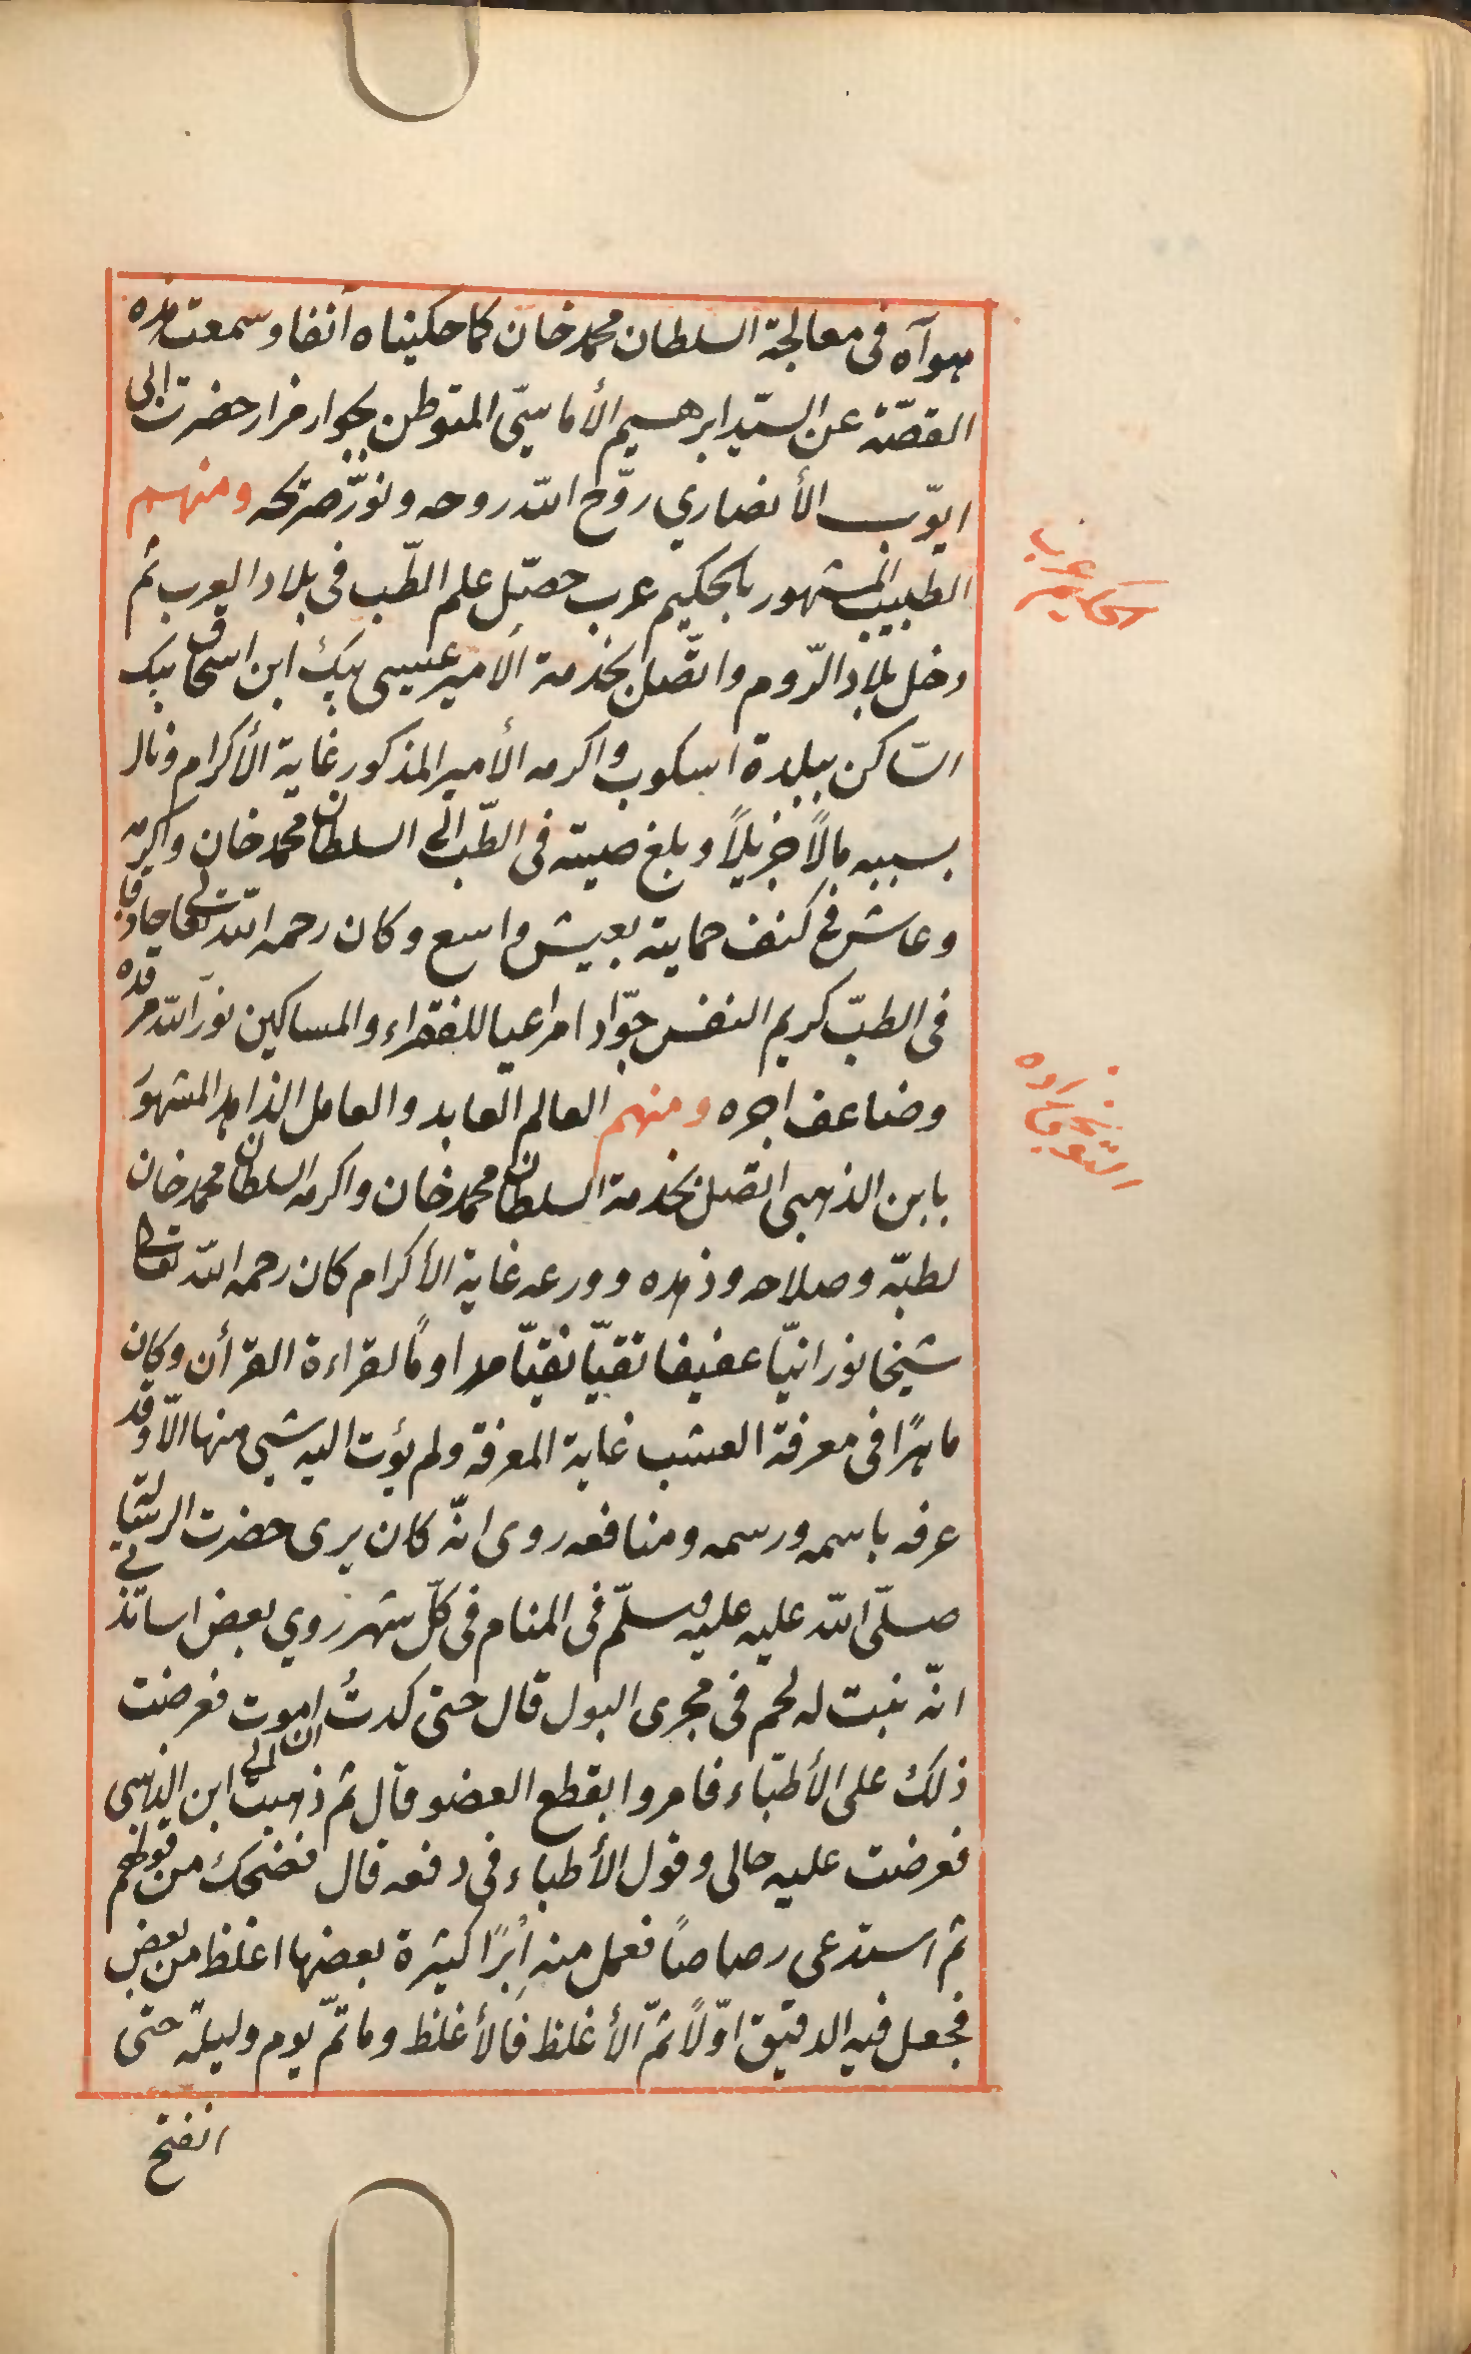 هوآه فى معالجة السلطان محمد خان كما حكيناه أنفا وسمعت هذه
القصّة عن السيّد ابرهيم الأماسيّى المتوطن بجوار مزار حضرت ابى
ايّوب الأنصاري روّح اللّه روحه ونوّر ضريحه ومنهم
الطّبيب المشهور بالحكيم عرب حصّل علم الطّب فى بلاد العرب ثم
دخل بلاد الرّوم واتّصل بخدمة الأمير عيسى بيك ابن اسحاق بيك
السّاكن ببلدة اسكوب واكرمه الأمير المذكور غاية الأكرام ونال
بسببه مالًا جزيلًا وبلغ صيته فى الطّب الى السلطان محمد خان واكرمه
وعاش فى كنف حمايته بعيش واسع وكان رحمه اللّه تعالى حاذقا
فى الطبّ كريم النفس جوّادا مراعيا للفقراء والمساكين نوّر اللّه مرقده
وضاعف اجره ومنهم العالم العابد والعامل الذاهد المشهور
بابن الذهبى اتّصل بخدمة السلطان محمد خان واكرمه السلطان محمد خان
لطبّه وصلاحه وزهده وورعه غاية الأكرام كان رحمه اللّه تعالى
شيخا نورانيّا عفيفا تقيّا نقيّا مداومًا لقراءة القرأن وكان
ماهرًا فى معرفة العشب غاية المعرفة ولم يؤت اليه شيى منها الّا وقد
عرفه باسمه ورسمه ومنافعه روى انّه كان يرى حضرت الرسالة
صلّى اللّه عليه عليه وسلّم فى المنام فى كلّ شهر روي بعض اساتذتى
انّه نبت له لحم فى مجرى البول قال حتى كدتُ ان اموت فعرضت
ذلك على الأطبّاء فامروا بقطع العضو قال ثم ذهبت الى ابن الذهبى
فعرضت عليه حالى وقول الأطباء فى دفعه قال فضحك من قولهم
ثم استدعى رصاصًا فعمل منه اِبرًا كثيرة بعضها اغلظ من بعض
فجعل فيه الدقيق اوّلًا ثمّ الأغلظ فالأغلظ وما تمّ يوم وليلة حتى
انفتح
الحكيم عرب